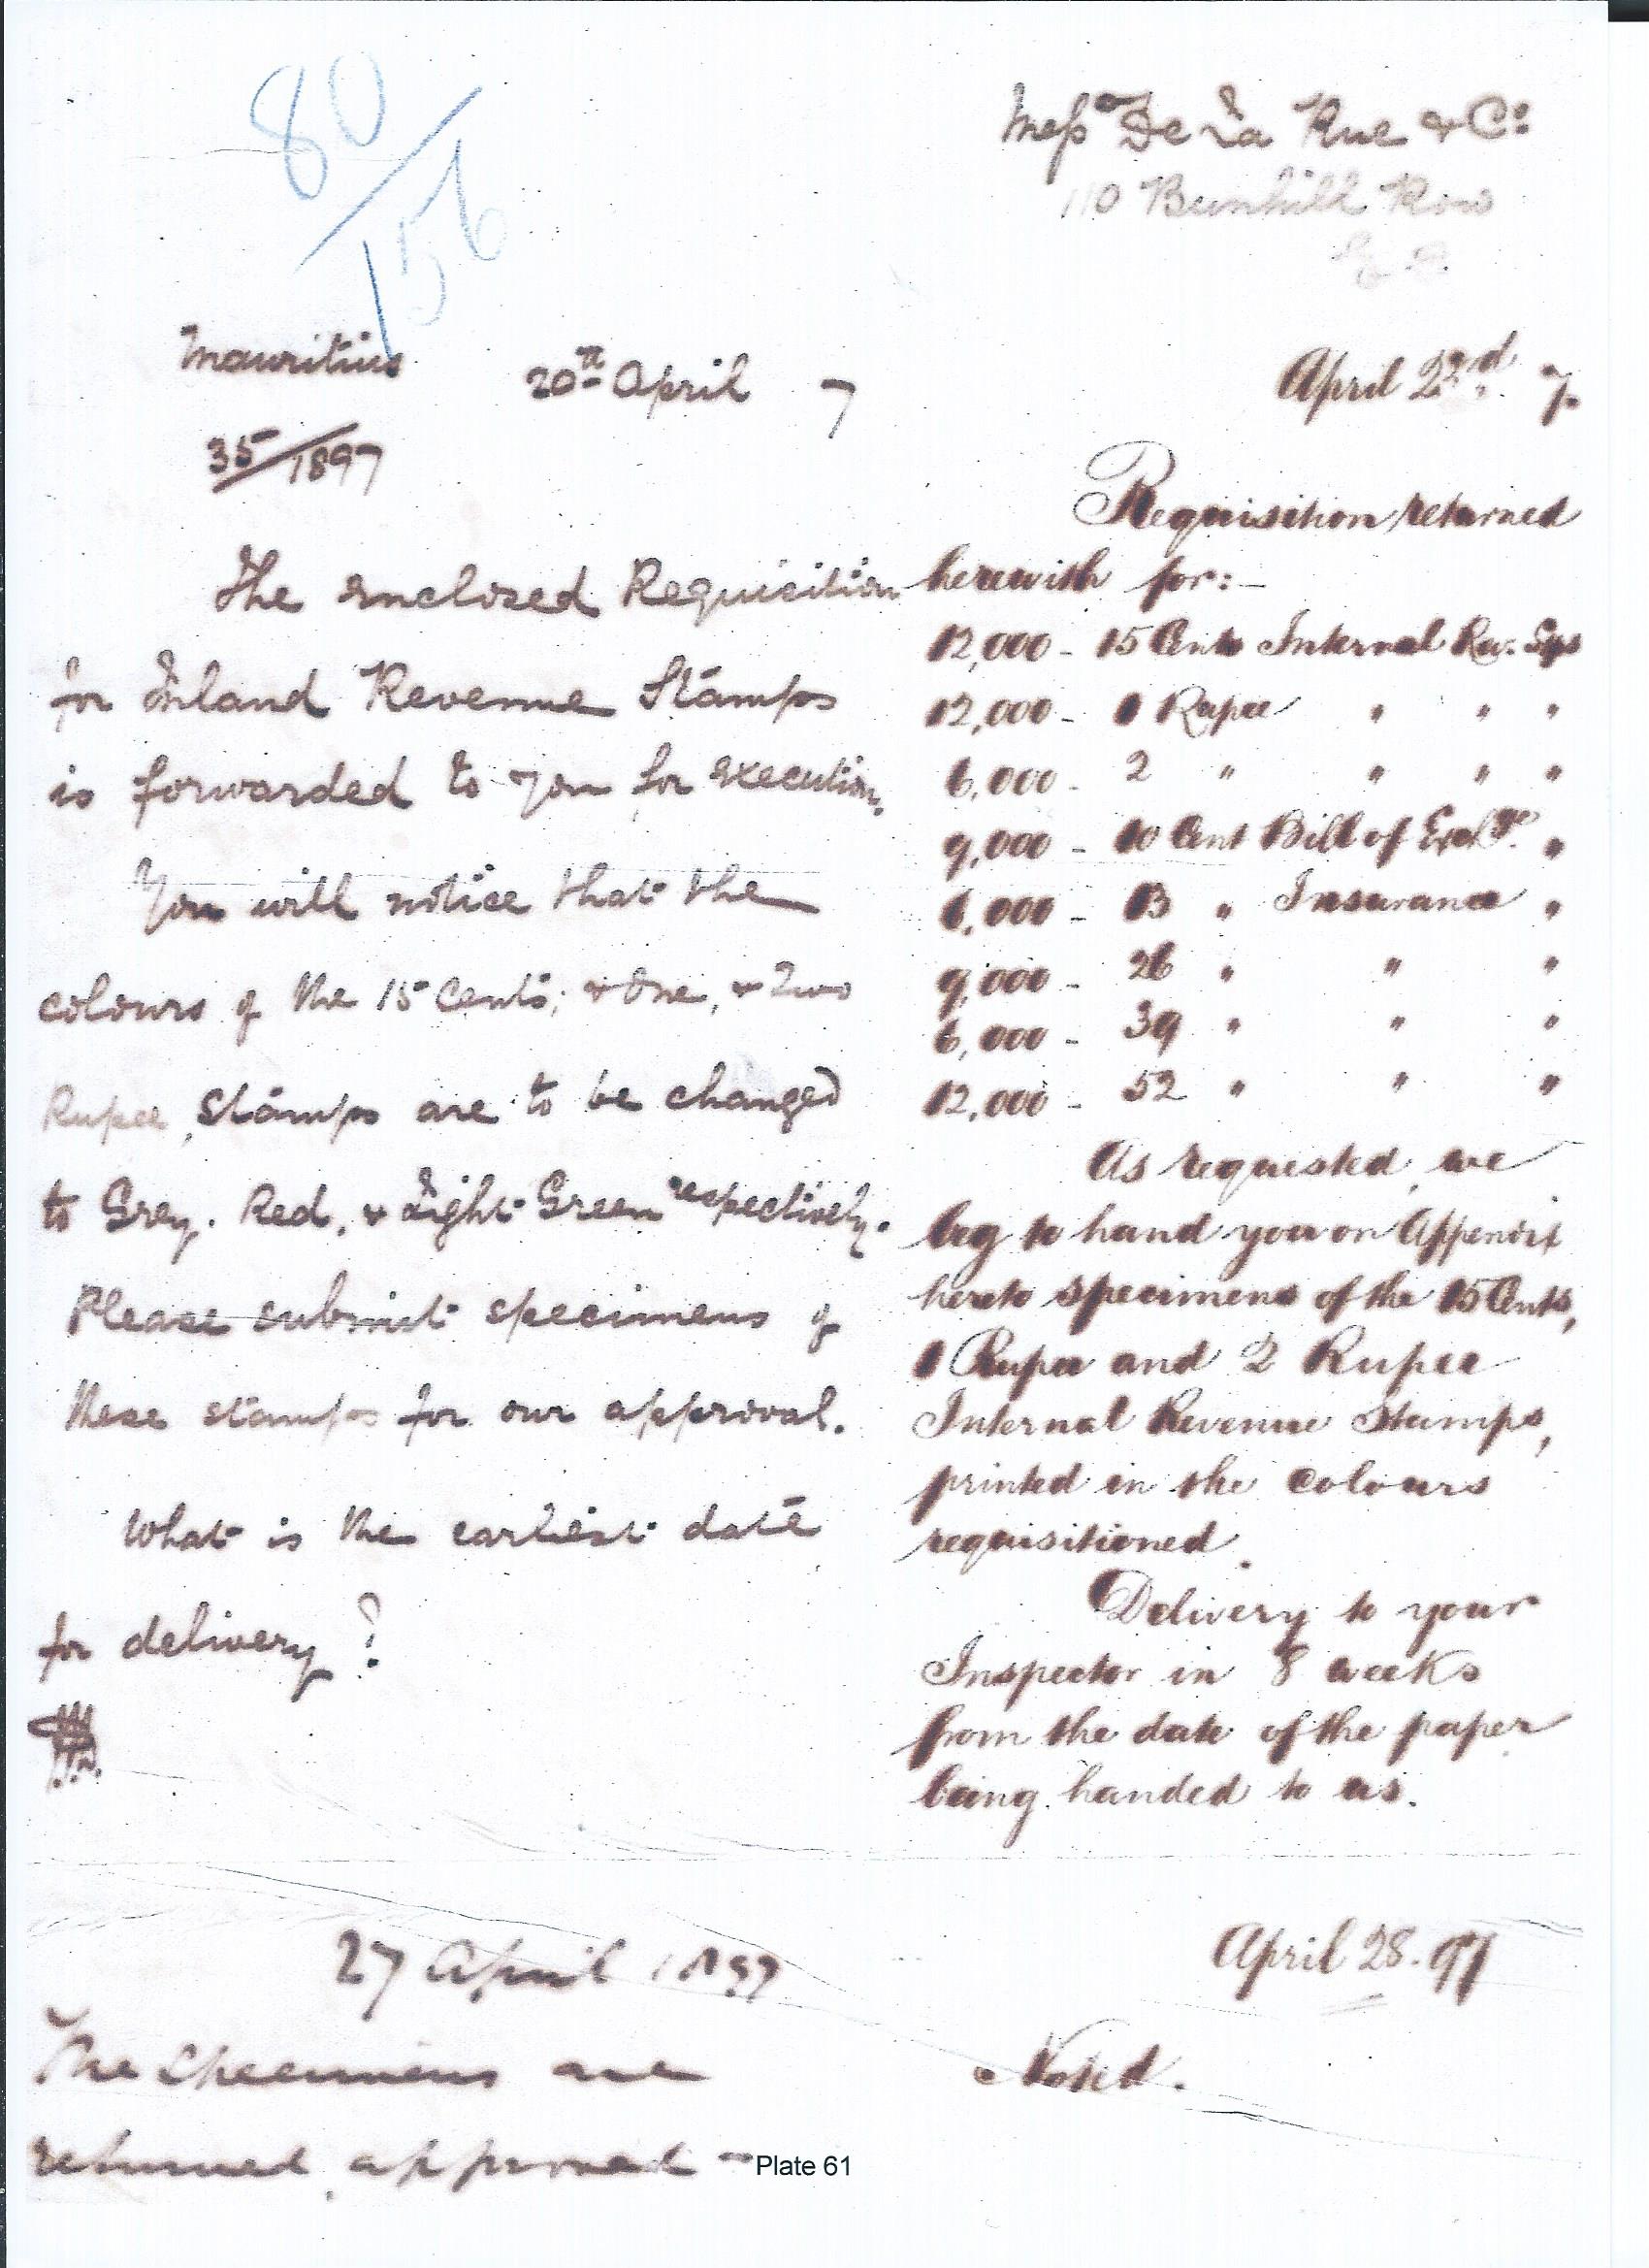 80/156
Mauritius 20th April 7
35/1897
The enclosed Requisition
for Inland Revenue Stamps
is forwarded to you for execution.
You will notice that the
colours of the 15 Cents, & One, & Two
Rupee, Stamps are to be changed
to Grey, Red, & Light Green respectively.
Please submit specimens of
these stamps for our approval.
What is the earliest date
for delivery?
27 April 1897
The Specimens are
returned approved -
Messrs De La Rue & Co.
110 Bunhill Row
April 22nd 7.
Requisition returned
herewith for:-
12,000 - 15 Cents Internal Rev: Sps
12,000 - 1 Rupee " " "
6,000 - 2 " " " "
9,000 - 10 Cent Bill of Exchge. "
6,000 - 13 " Insurance "
9,000 - 26 " " "
6,000 - 39 " " "
12,000 - 52 " " "
As requested, we
beg to hand you on Appendix
hereto specimens of the 15 Cents,
1 Rupee and 2 Rupee
Internal Revenue Stamps,
printed in the colours
requisitioned.
Delivery to your
Inspector in 8 weeks
from the date of the paper
being handed to us.
April 28. 97
Noted.
Plate 61